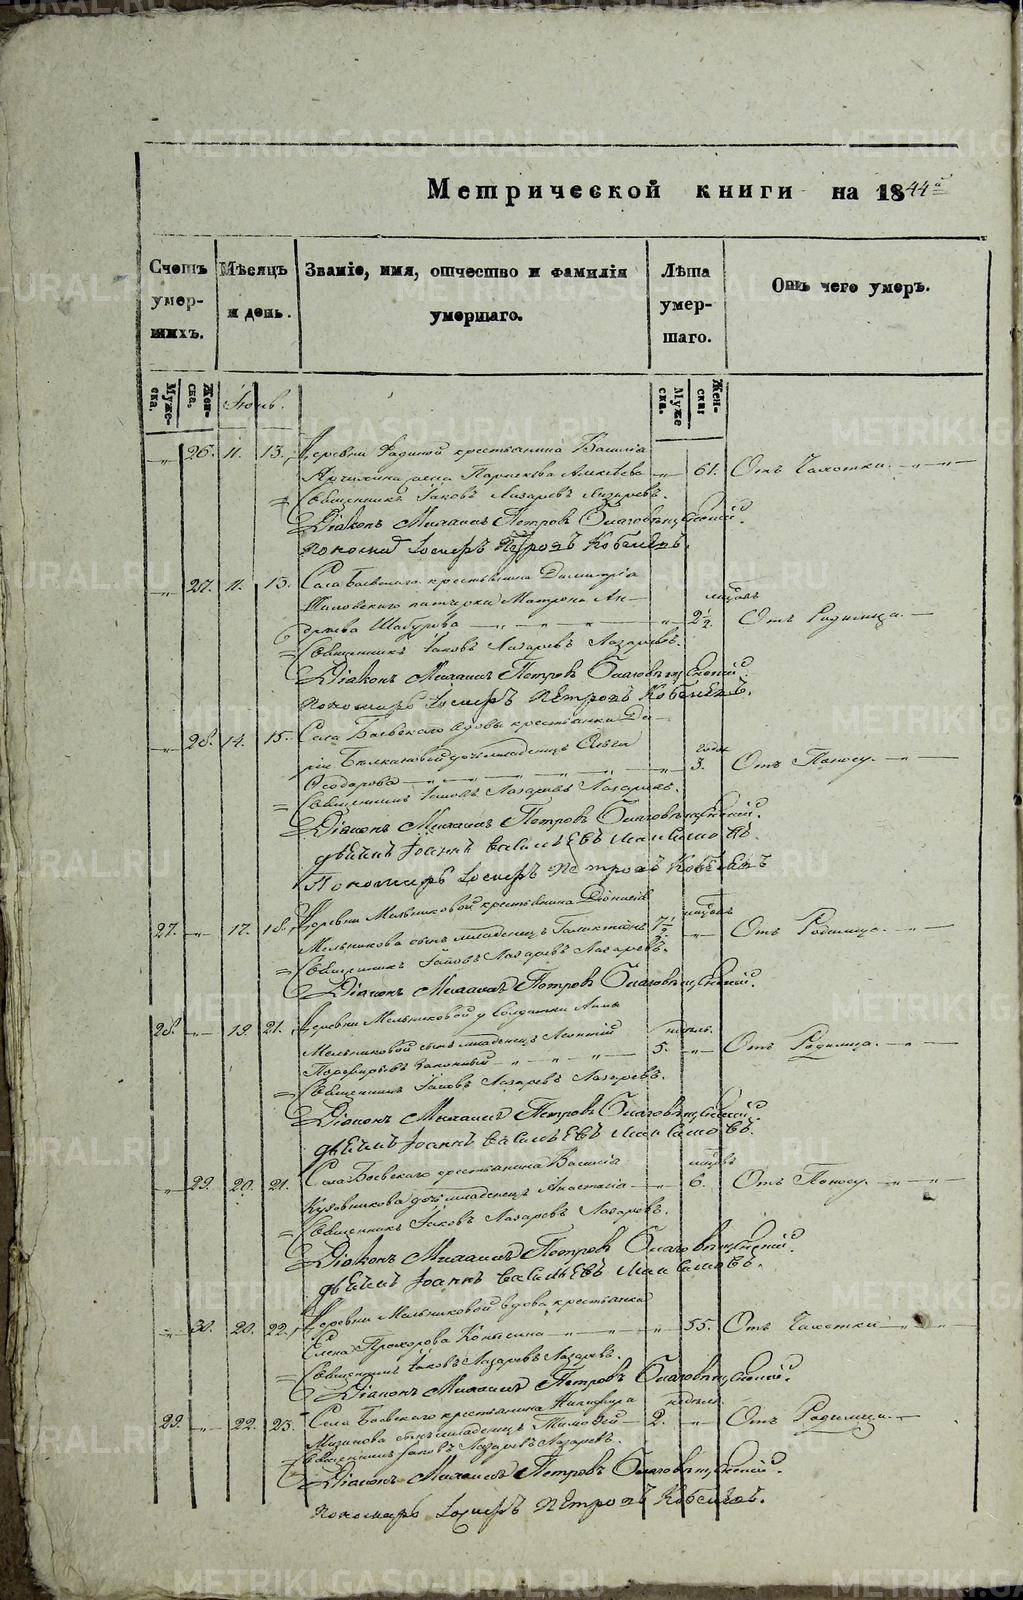 Метрической книги на 1844й
Счетъ умершихъ.
Мѣсяцъ и день.
Званіе, имя, отчество и фамилія умершаго.
Лѣта умершаго.
Отъ чего умеръ.
Мужеска.
Женска.
Іюнь.
Мужеска.
Женска.
„ 26. 11. 13. Деревни крестьянина Василія
жена Алексѣева „ 61. Отъ Чахотки.
Священникъ Іаковъ Лазаревъ Лазаревъ.
Діаконъ Михаилъ Петровъ Благовѣщенскій.
Пономарь Іосифъ Петровъ Кобелевъ.
„ 27. 11. 13. Села Боевскаго крестьянина Димитрія
Матрона Ан-
дреева „ мѣсяцъ 2½ Отъ Родимца.
Священникъ Іаковъ Лазаревъ Лазаревъ.
Діаконъ Михаилъ Петровъ Благовѣщенскій
Пономарь Іосифъ Петровъ Кобелевъ.
„ 28. 14. 15. Села Боевскаго вдовы крестьянки Да-
ріи дочь младенецъ Ольга
Ѳеодорова „ года 3. Отъ Поносу.
Священникъ Іаковъ Лазаревъ Лазаревъ.
Діаконъ Михаилъ Петровъ Благовѣщенскій.
Дьячекъ Іоаннъ Васильевъ
Пономарь Іосифъ Петровъ Кобелевъ
27. „ 17. 18. Деревни Мельниковой крестьянина Діонисія
Мельникова сынъ младенецъ Галактіонъ 7½ мѣсяцъ „ Отъ Родимца.
Священникъ Іаковъ Лазаревъ Лазаревъ.
Діаконъ Михаилъ Петровъ Благовѣщенскій.
28. „ 19. 21. Деревни Мельниковой у Солдатки Анны
Мельниковой сынъ младенецъ Леонтій
недѣль 5. „ Отъ Родимца.
Священникъ Іаковъ Лазаревъ Лазаревъ.
Діаконъ Михаилъ Петровъ Благовѣщенскій.
Дьячекъ Іоаннъ Васильевъ
„ 29. 20. 21. Села Боевскаго крестьянина Василія
Кузовникова дочь младенецъ Анастасія „ мѣсяцъ 6. Отъ Поносу.
Священникъ Іаковъ Лазаревъ Лазаревъ.
Діаконъ Михаилъ Петровъ Благовѣщенскій.
Дьячекъ Іоаннъ Васильевъ
„ 30. 20. 22. Деревни Мельниковой вдова крестьянка
Елена Прохорова „ 55. Отъ Чахотки
Священникъ Іаковъ Лазаревъ Лазаревъ.
Діаконъ Михаилъ Петровъ Благовѣщенскій.
29. „ 22. 23. Села Боевскаго крестьянина Никифора
сынъ младенецъ Тимофей недѣли 2. „ Отъ Родимца.
Священникъ Іаковъ Лазаревъ Лазаревъ.
Діаконъ Михаилъ Петровъ Благовѣщенскій.
Пономарь Іосифъ Петровъ Кобелевъ.
METRIKI.GASO-URAL.RU